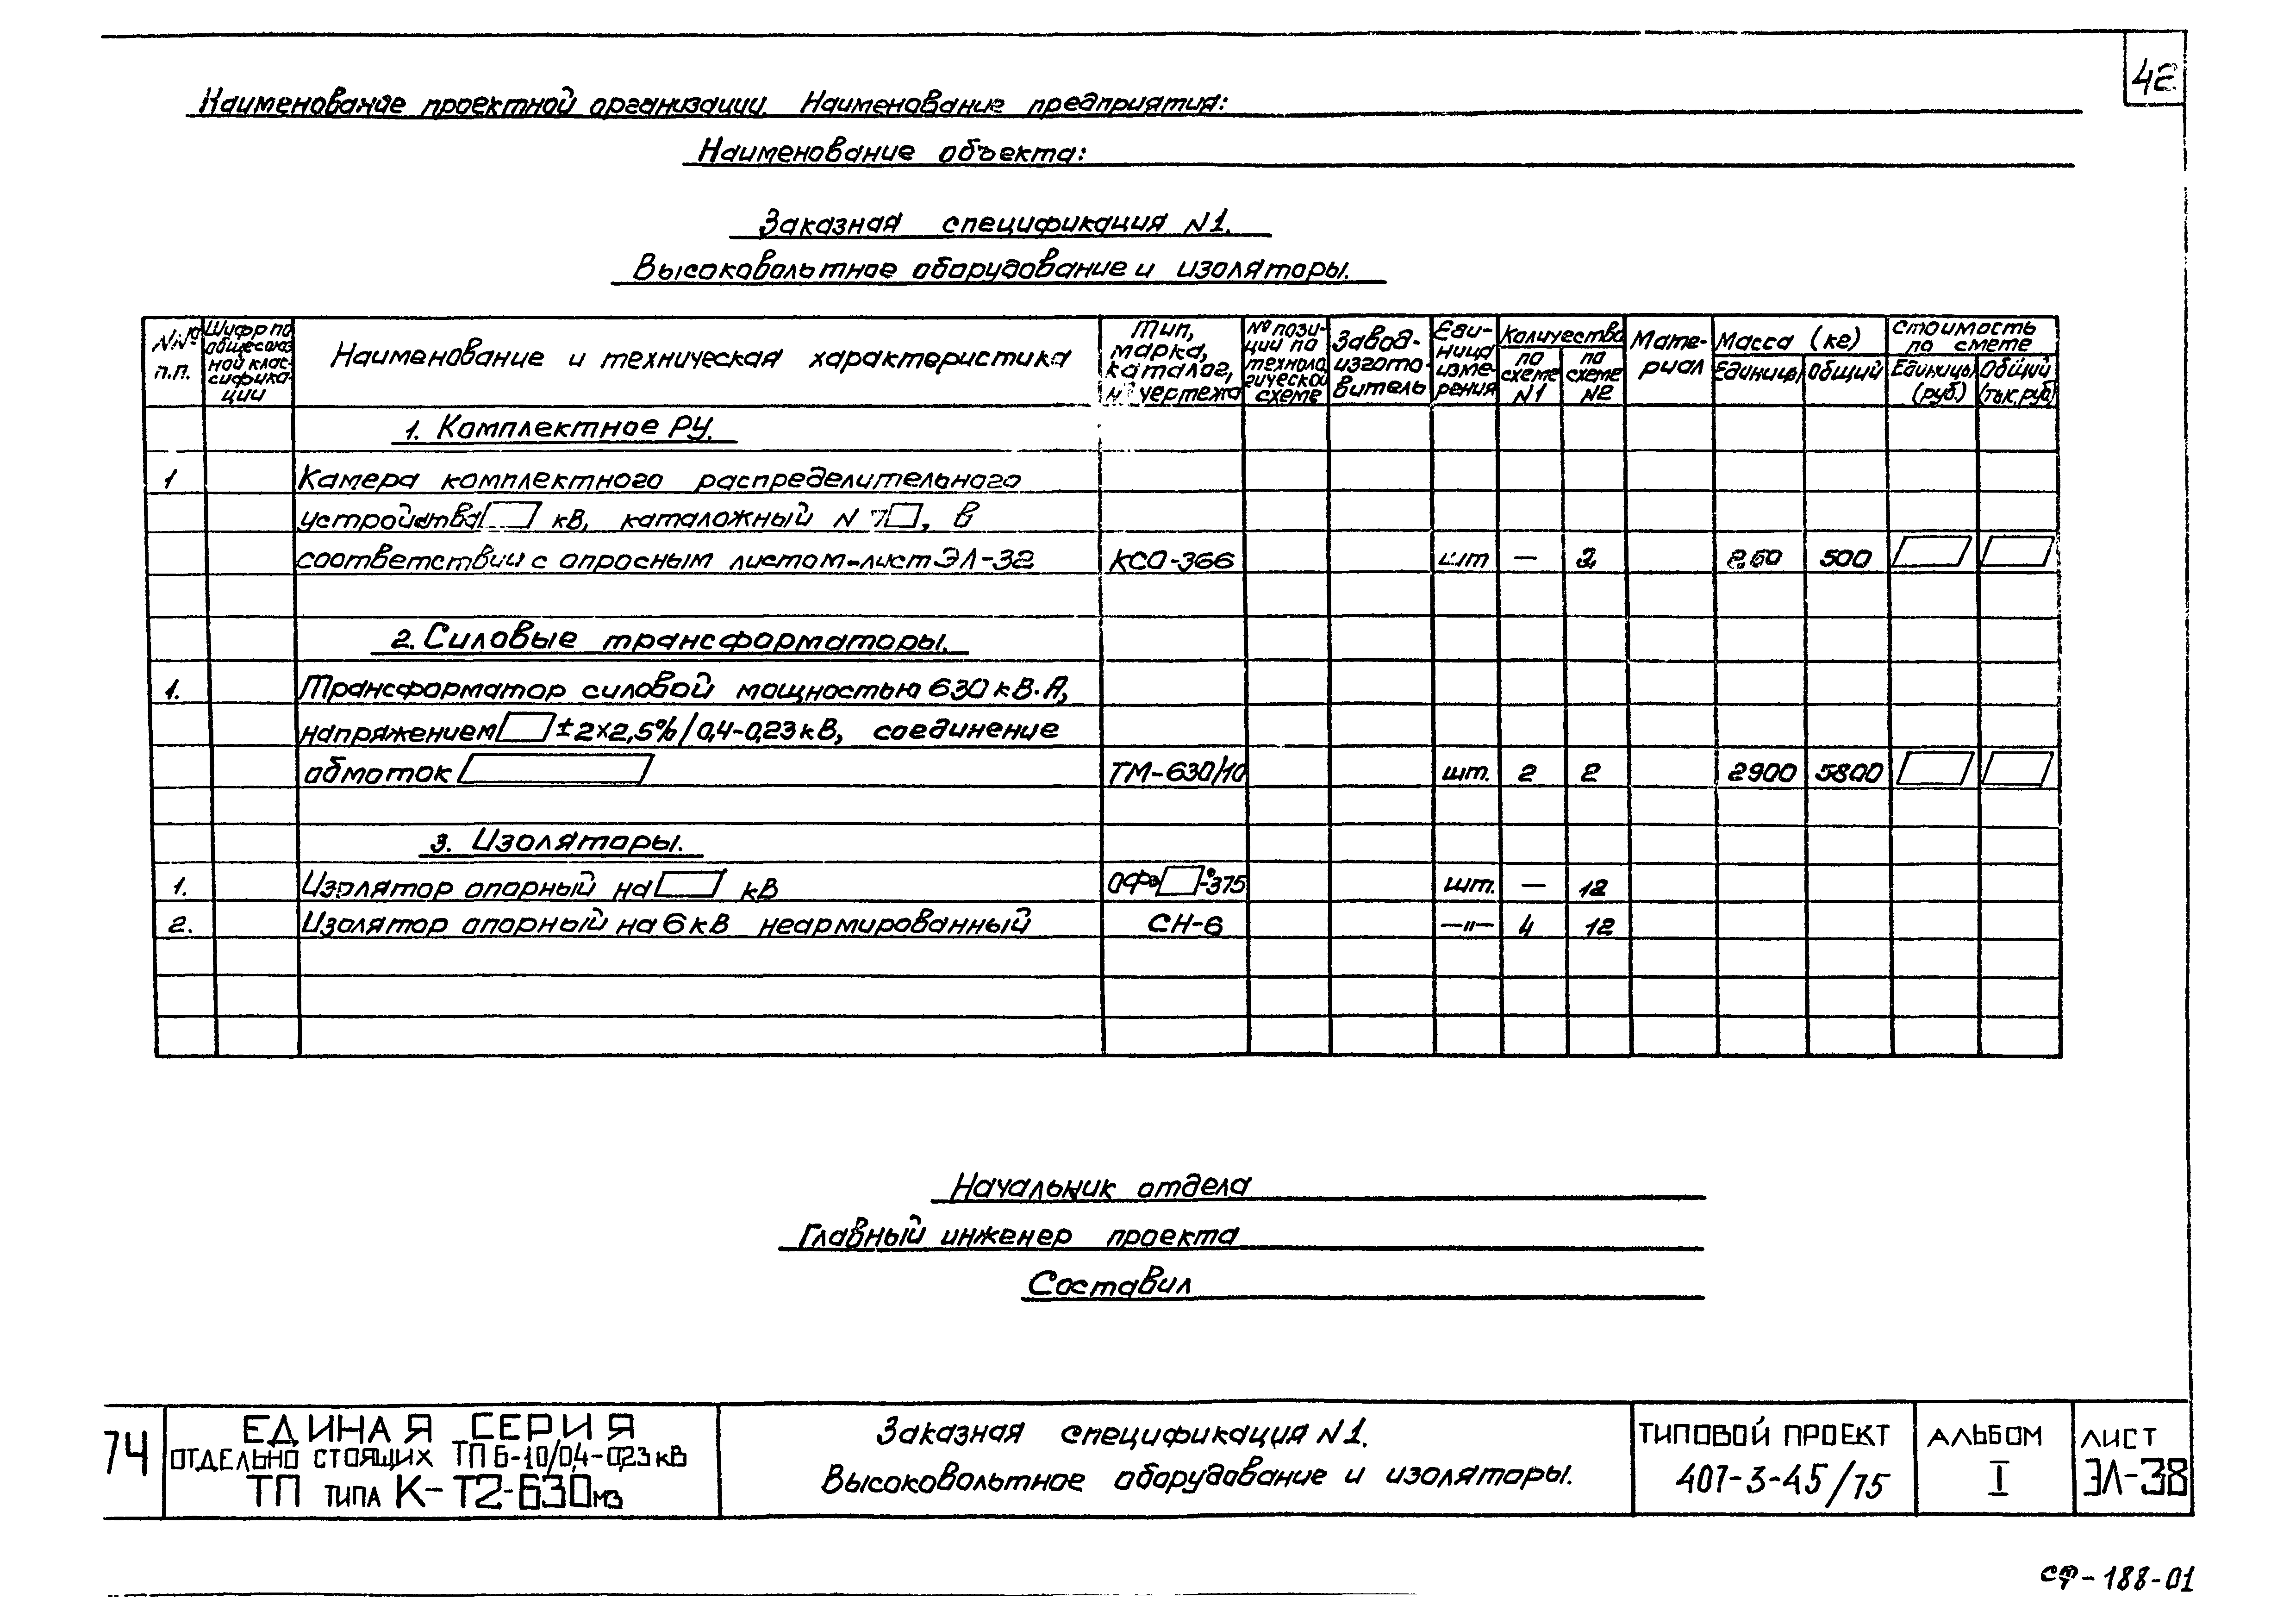 42
Наименование проектной организации. Наименование предприятия:
Наименование объекта:
Заказная спецификация N1.
Высоковольтное оборудование и изоляторы.
NNº п.п.
Шифр по общесоюзной классификации
Наименование и техническая характеристика
Тип, марка, каталог, N чертежа
№ позиции по технологической схеме
Завод-изготовитель
Единица измерения
Количество
по схеме N1
по схеме N2
Материал
Масса (кг)
Единицы
Общий
Стоимость по смете
Единицы (руб.)
Общий (тыс.руб)
1. Комплектное РУ.
1 Камера комплектного распределительного
устройства кВ, каталожный N , в
соответствии с опросным листом-лист ЭЛ-32 КСО-366 шт — 2 250 500
2. Силовые трансформаторы.
1. Трансформатор силовой мощностью 630 кВ·А,
напряжением ±2×2,5%/0,4-0,23кВ, соединение
обмоток ТМ-630/10 шт. 2 2 2900 5800
3. Изоляторы.
1. Изолятор опорный на кВ ОФ -375 шт. — 12
2. Изолятор опорный на 6 кВ неармированный СН-6 —"— 4 12
Начальник отдела
Главный инженер проекта
Составил
74
ЕДИНАЯ СЕРИЯ
ОТДЕЛЬНО СТОЯЩИХ ТП 6-10/0,4-0,23 кВ
ТП ТИПА К-Т2-630 М3
Заказная спецификация N1.
Высоковольтное оборудование и изоляторы.
ТИПОВОЙ ПРОЕКТ
407-3-45/75
АЛЬБОМ
I
ЛИСТ
ЭЛ-38
СФ-188-01